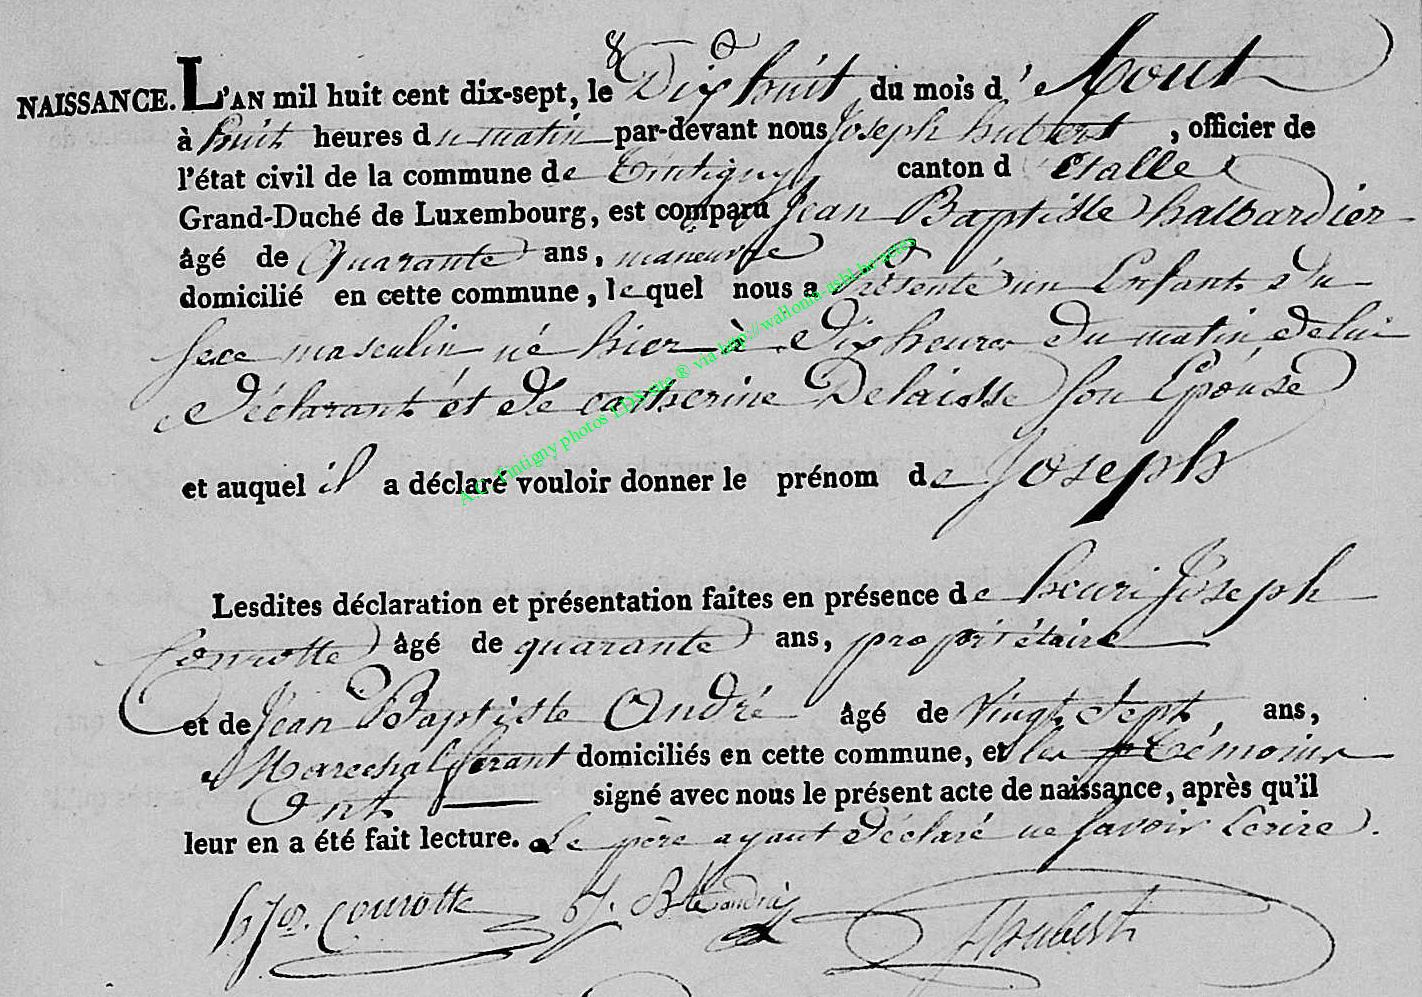 NAISSANCE. L'AN mil huit cent dix-sept, le Dix huit du mois d'Aout
à huit heures du matin par-devant nous Joseph hubert, officier de
l'état civil de la commune de Tintigny canton d'Etalle
Grand-Duché de Luxembourg, est comparu Jean Baptiste halbardier
âgé de Quarante ans, maneuvre
domicilié en cette commune, lequel nous a présenté un Enfant du
sexe masculin né hier à Dix heures du matin de lui
Déclarant et de catherine Delaisse son Epouse
et auquel il a déclaré vouloir donner le prénom de Joseph
Lesdites déclaration et présentation faites en présence de henri Joseph
Conrotte âgé de quarante ans, propriétaire
et de Jean Baptiste André âgé de Vingt Sept, ans,
Marechal ferant domiciliés en cette commune, et les témoins
Ont signé avec nous le présent acte de naissance, après qu'il
leur en a été fait lecture. Le père ayant déclaré ne savoir Ecrire.
hJos. Conrotte J. Bte andré JHubert
A.C. Tintigny photos LDS site ® via http://wallonia-asbl.be/sites